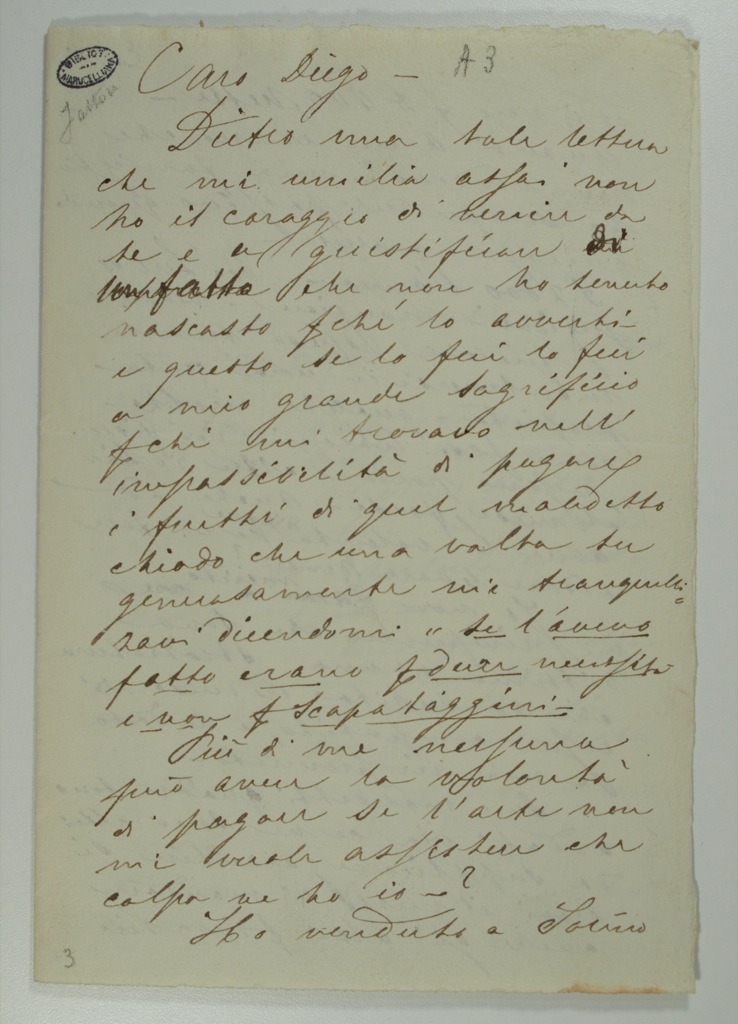 BIBLIOT MARUCELLIANA
Fattori
A 3
Caro Diego —
Dietro una tale lettera
che mi umilia assai non
ho il coraggio di venire da
te e a giustificar di
un fatto che non ho tenuto
nascosto pché lo avverti—
e questo se lo feci lo feci
a mio grande sagrificio
pché mi trovavo nell'
impossibilità di pagare
i frutti di quel maledetto
chiodo che una volta tu
generosamente mi tranquilli=
zavi dicendomi „ se l'avevo
fatto erano p dure necessità
e non p Scapatággini—
Più di me nessuno
può avere la volontà
di pagare se l'arte non
mi vuole assistere che
colpa ne ho io—?
Ho venduto a Torino
3